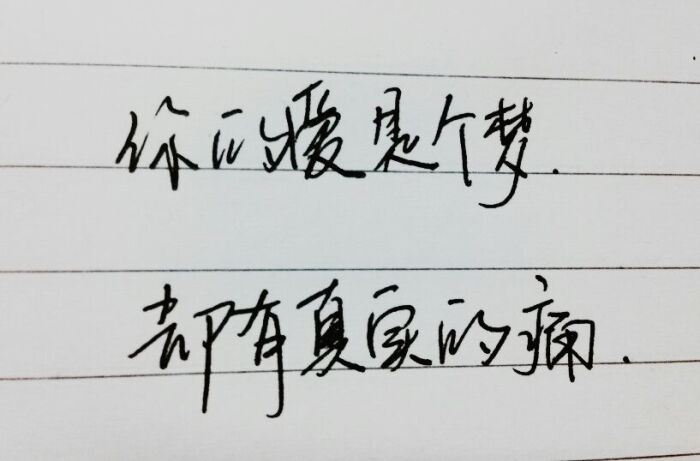 你的爱是个梦.
却有真实的痛.